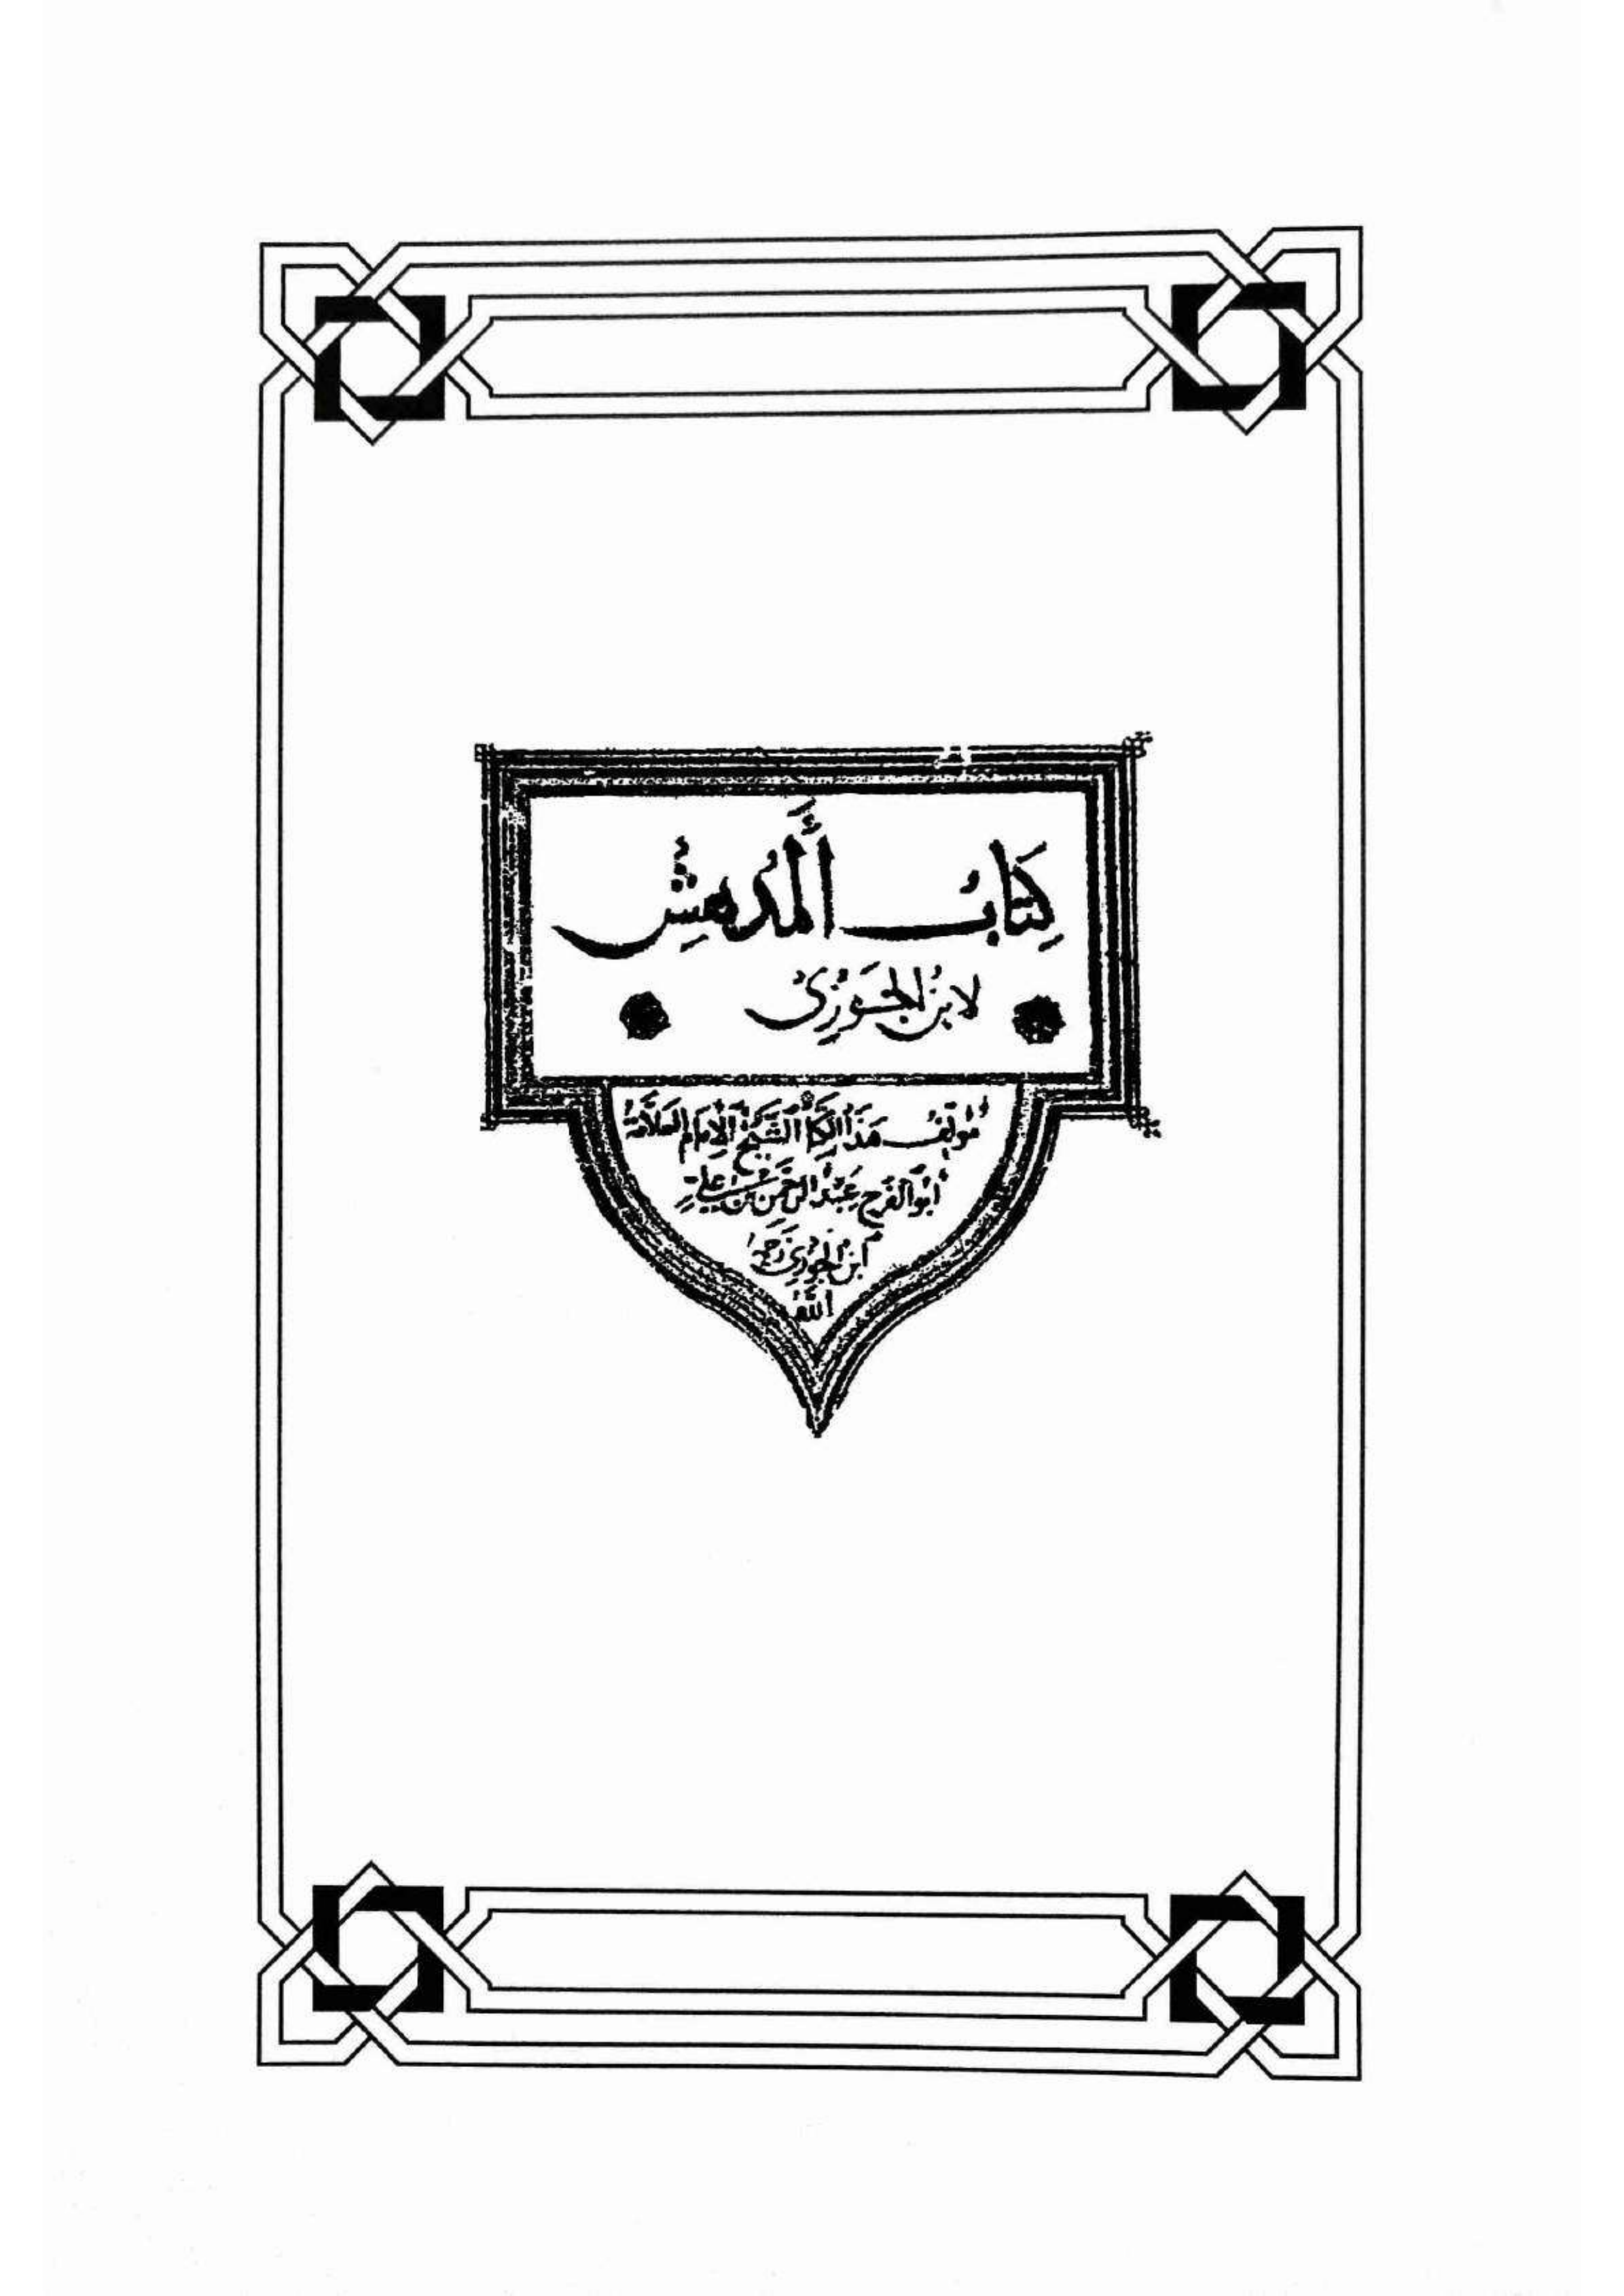 كِتَابُ أَلْمُدهِشِ
لابنِ الجَوزِيِّ
مُؤلِّفُ هَذَا الكِتَابِ الشَّيْخُ الإِمَامُ العَلَّامَةُ
أَبُو الفَرَجِ عَبْدُ الرَّحْمَنِ بْنُ عَلِيِّ
ابْنُ الجَوْزِيِّ رَحِمَهُ
اللَّهُ